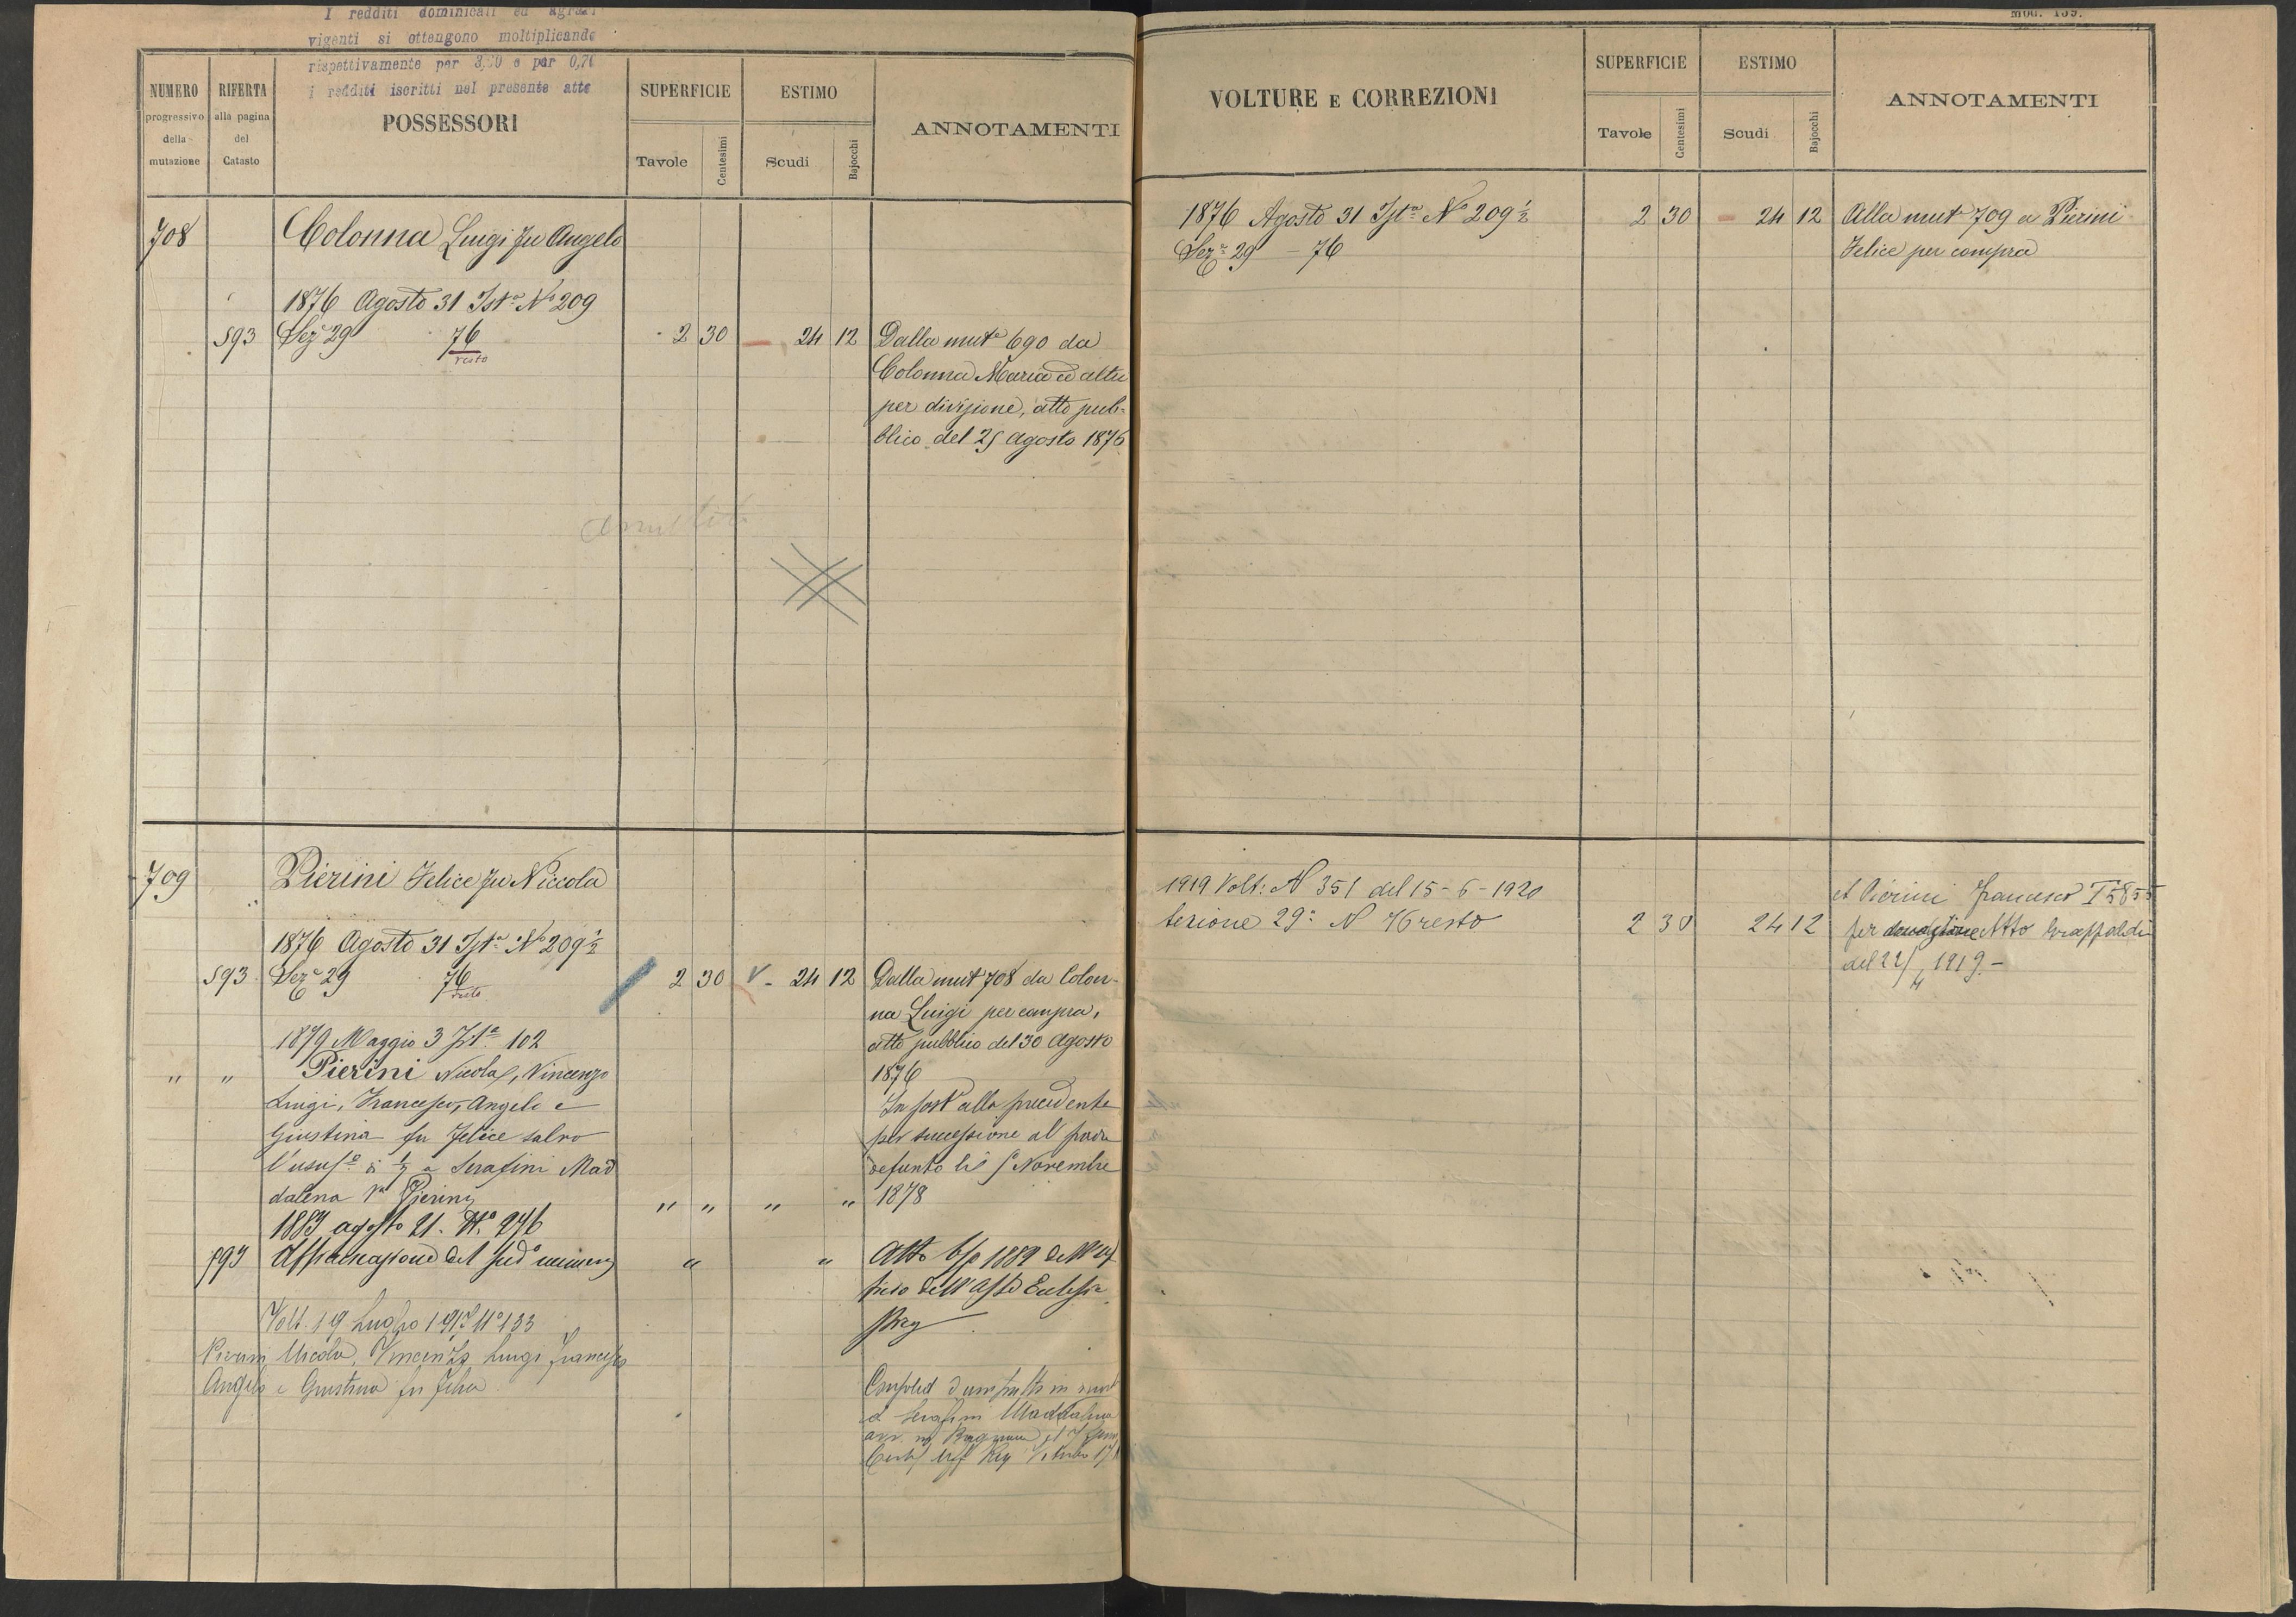 I redditi dominicali ed agrari
vigenti si ottengono moltiplicando
rispettivamente per 3,20 e per 0,70
i redditi iscritti nel presente atto
NUMERO
progressivo
della
mutazione
RIFERTA
alla pagina
del
Catasto
POSSESSORI
SUPERFICIE
Tavole
Centesimi
ESTIMO
Scudi
Bajocchi
ANNOTAMENTI
708
Colonna Luigi fu Angelo
1876 Agosto 31 Ista No 209
593 Seze 29 76 2 30 24 12 Dalla muta 690 da
resto
Colonna Maria ed altri
per divisione, atto pub-
blico del 25 Agosto 1876
709
Pierini Felice fu Niccola
1876 Agosto 31 Ista No 209 1/2
593 Seze 29 76 2 30 V 24 12 Dalla mut 708 da Colon-
resto
na Luigi per compra,
atto pubblico del 30 Agosto
1876
1879 Maggio 3 Ista 102
" " Pierini Nicola, Vincenzo
Luigi, Francesco, Angelo e
Giustina fu Felice salvo
l'usufo di a Serafini Mad
dalena Va Pierini " " " "
In post alla precedente
per successione al padre
defunto li Novembre
1878
1883 agosto 21. No 246
593 Affrancazione del sudo numero " "
Atto 1882 dell'uf
ficio dell'Asse Eccles
Volt. 19 Luglio No 133
Pierini Nicola, Vincenzo Luigi Francesco
Angelo e Giustina fu Felice
Consolid d'usufrutto in mort
d Serafini Maddalena
Mod. 139.
VOLTURE E CORREZIONI
SUPERFICIE
Tavole
Centesimi
ESTIMO
Scudi
Bajocchi
ANNOTAMENTI
1876 Agosto 31 Ista No 209 1/2 2 30 24 12 Alla mut 709 a Pierini
Seze 29 – 76 Felice per compra
1919 Volt: N 351 del 15-6-1920
sezione 29a N 76 resto 2 30 24 12
A Pierini Francesco
per donazione Atto
del 22/4 1919 –